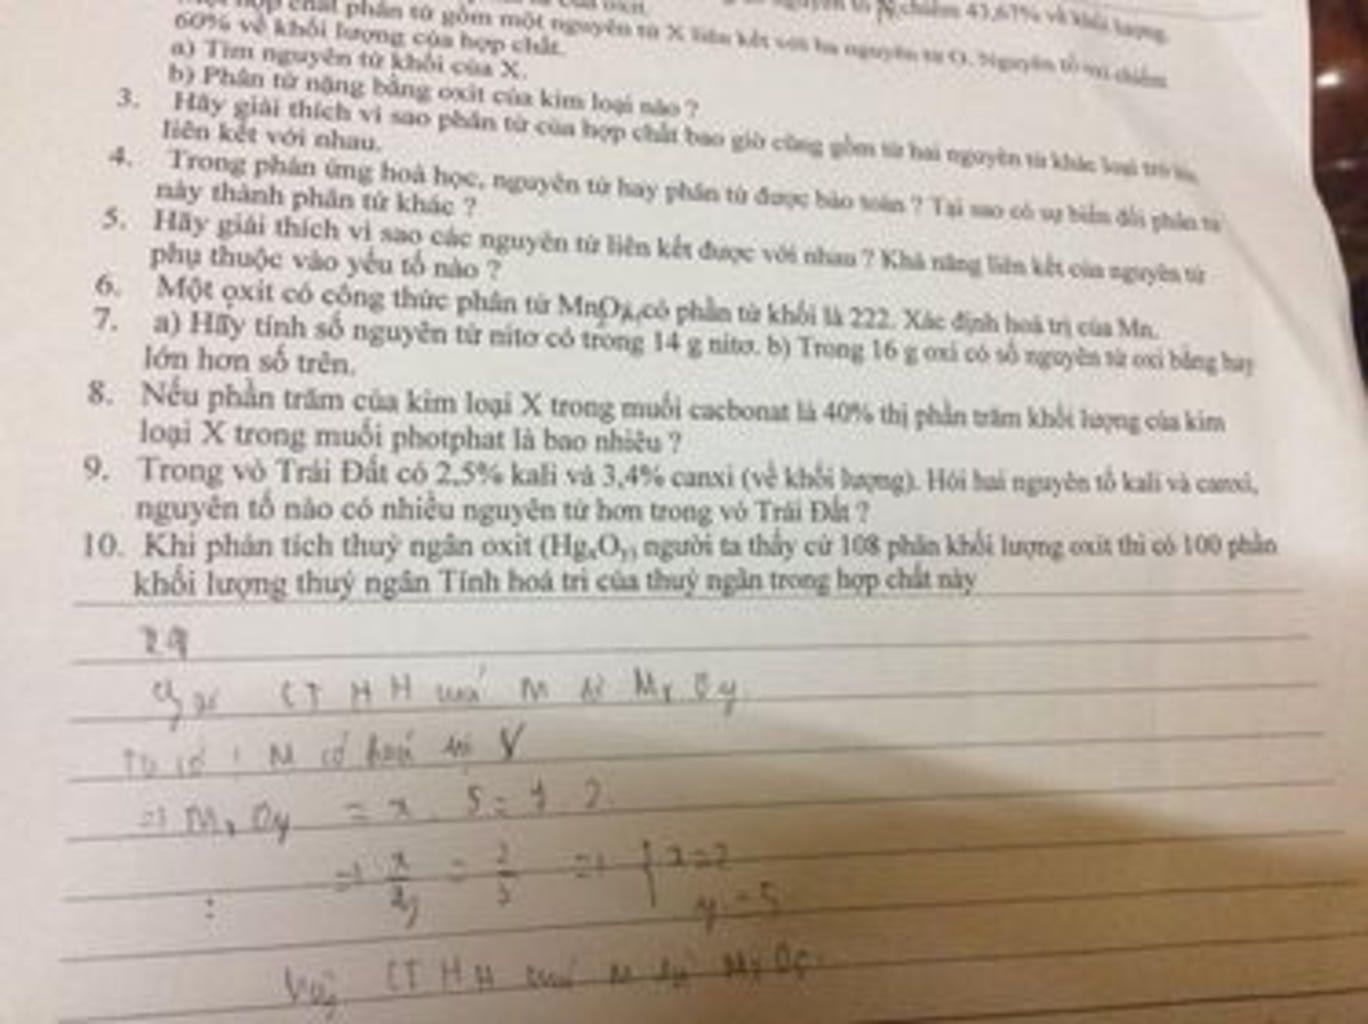 chiếm 43,67% về khối lượng.
hợp chất phân tử gồm một nguyên tử X liên kết với ba nguyên tử O. Nguyên tố oxi chiếm
60% về khối lượng của hợp chất.
a) Tìm nguyên tử khối của X.
b) Phân tử nặng bằng oxit của kim loại nào ?
3. Hãy giải thích vì sao phân tử của hợp chất bao giờ cũng gồm từ hai nguyên tử khác loại trở lên
liên kết với nhau.
4. Trong phản ứng hoá học, nguyên tử hay phân tử được bảo toàn ? Tại sao có sự biến đổi phân tử
này thành phân tử khác ?
5. Hãy giải thích vì sao các nguyên tử liên kết được với nhau ? Khả năng liên kết của nguyên tử
phụ thuộc vào yếu tố nào ?
6. Một oxit có công thức phân tử có phân tử khối là 222. Xác định hoá trị của Mn.
7. a) Hãy tính số nguyên tử nitơ có trong 14 g nitơ. b) Trong 16 g oxi có số nguyên tử oxi bằng hay
lớn hơn số trên.
8. Nếu phần trăm của kim loại X trong muối cacbonat là 40% thị phần trăm khối lượng của kim
loại X trong muối photphat là bao nhiêu ?
9. Trong vỏ Trái Đất có 2,5% kali và 3,4% canxi (về khối lượng). Hỏi hai nguyên tố kali và canxi,
nguyên tố nào có nhiều nguyên tử hơn trong vỏ Trái Đất ?
10. Khi phân tích thuỷ ngân oxit (HgₓOᵧ) người ta thấy cứ 108 phần khối lượng oxit thì có 100 phần
khối lượng thuỷ ngân Tính hoá trị của thuỷ ngân trong hợp chất này
CTHH M MxOy
M có hoá trị V
=> MxOy = x . 5 = y . 2
=> x/y = 2/5 => { x = 2
y = 5
Vậy CTHH M